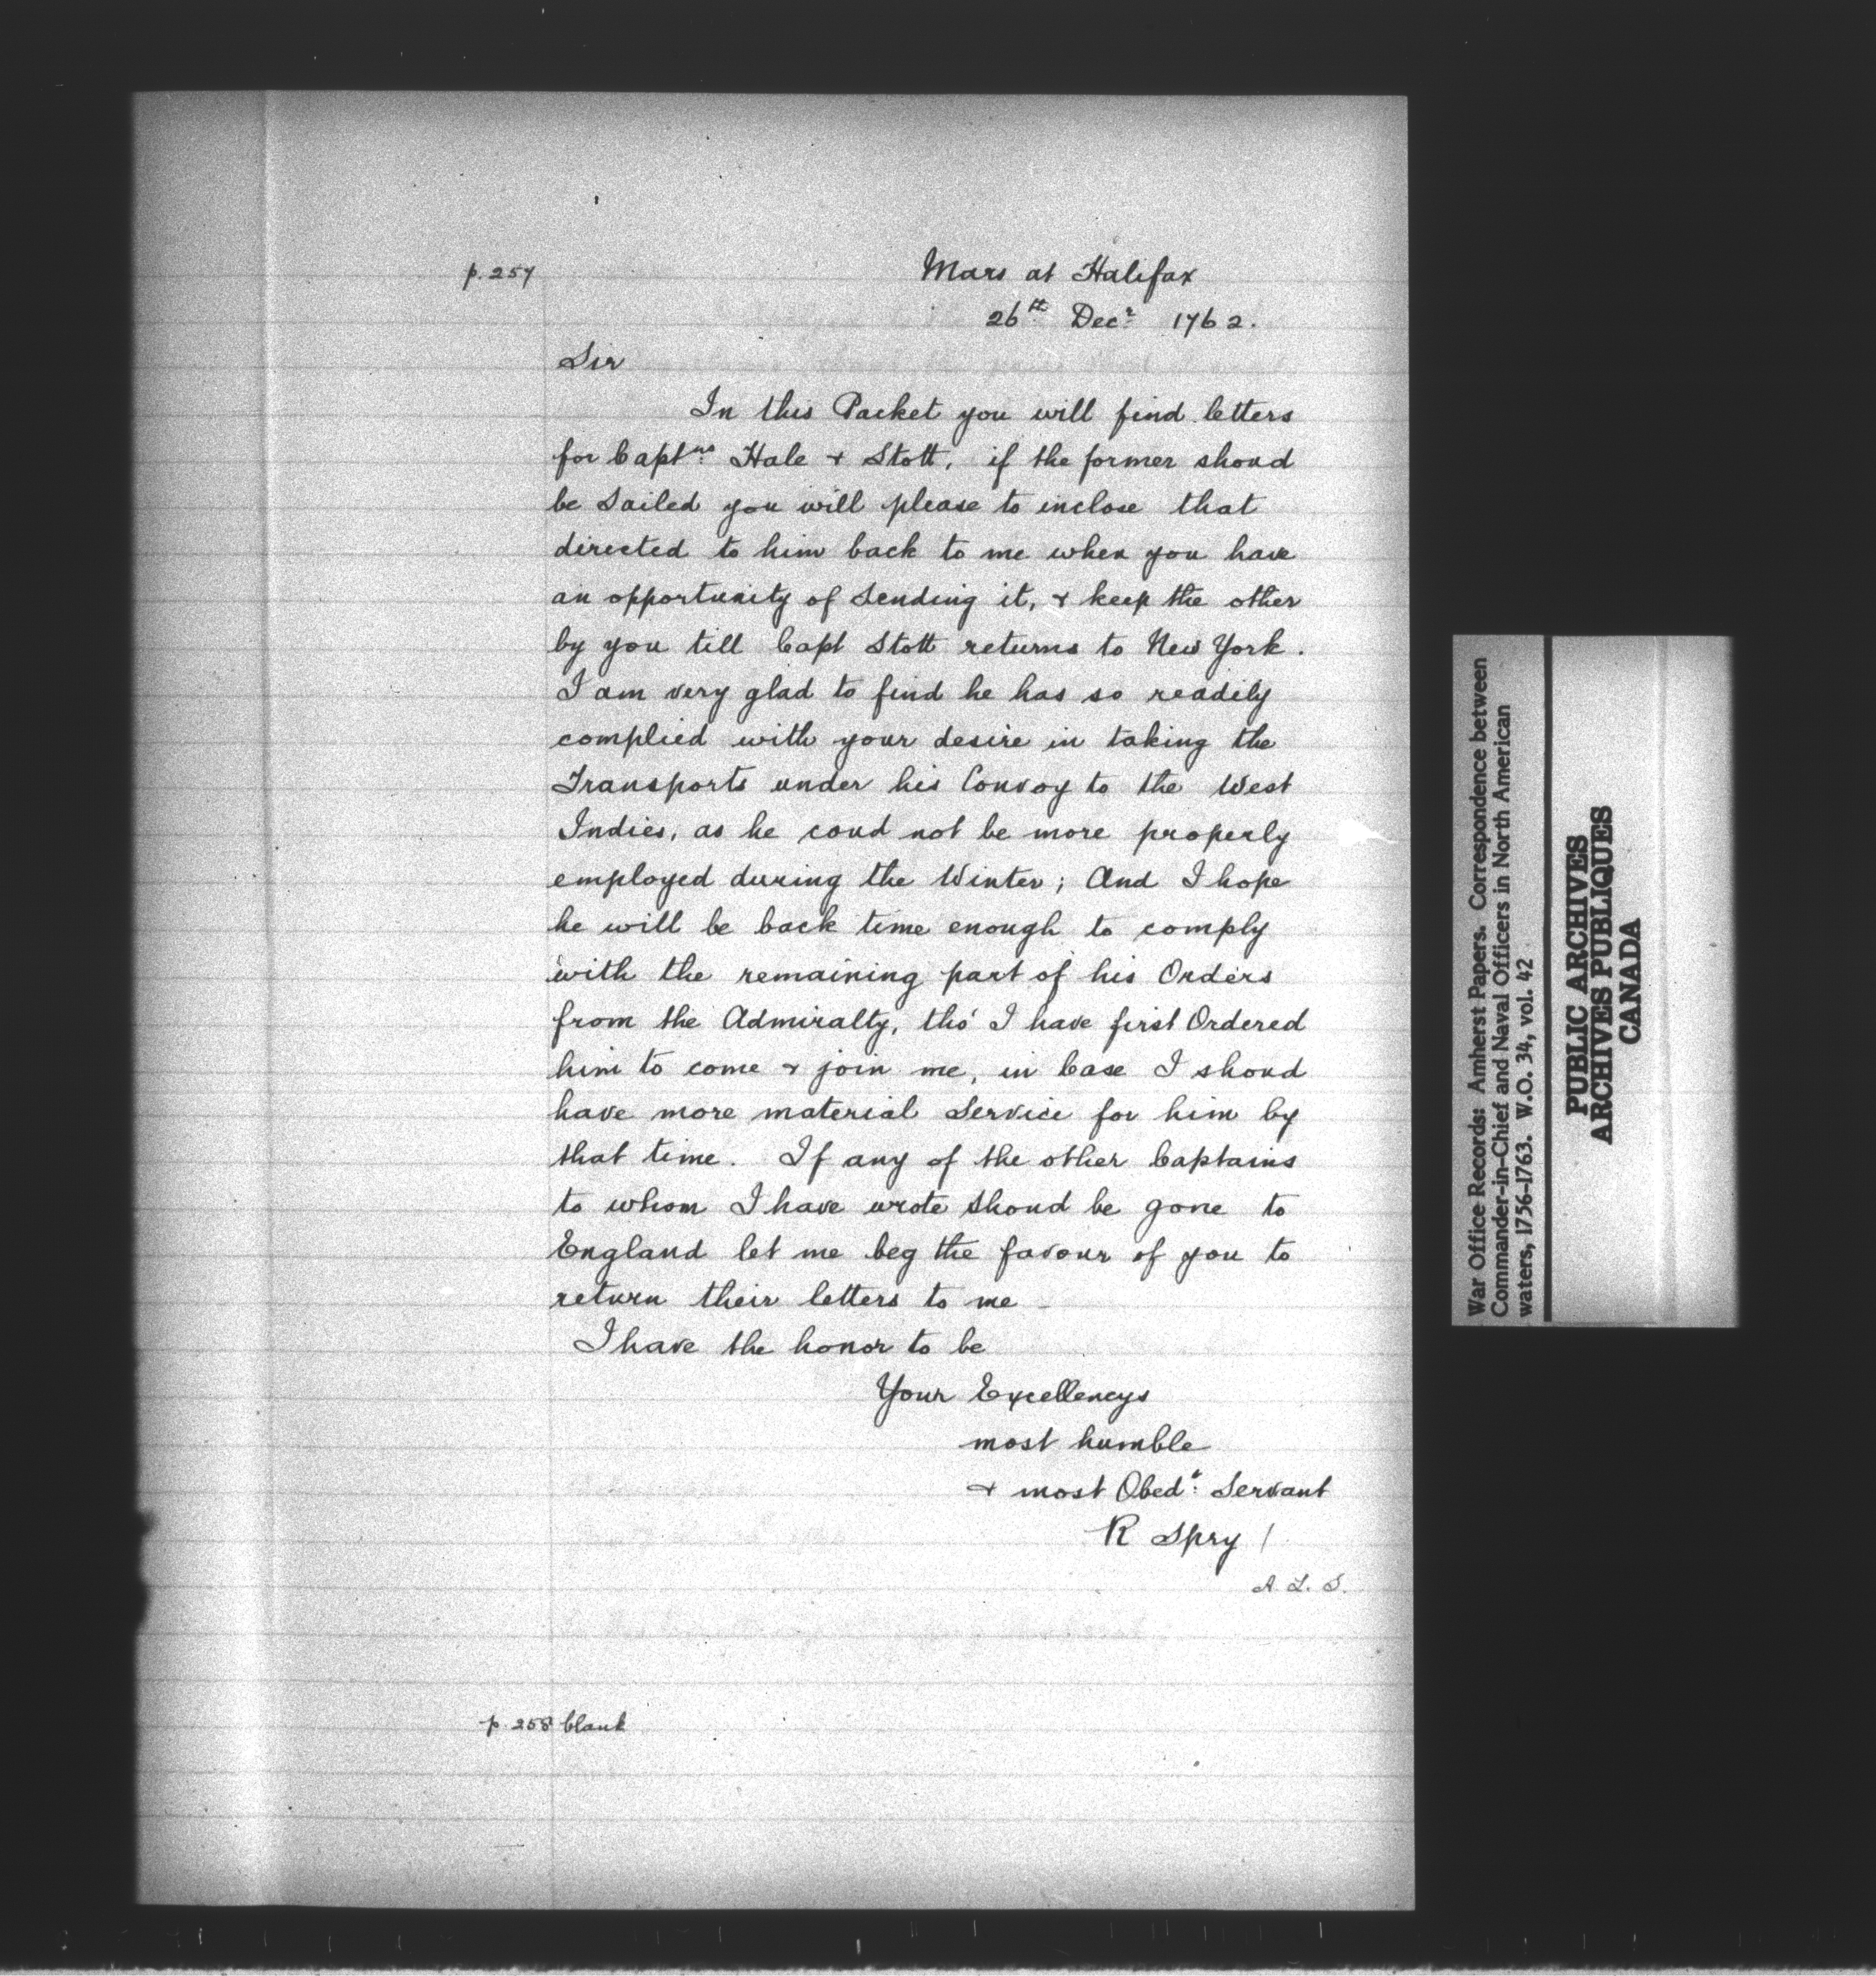 p. 257
Mars at Halifax
26th Decr 1762.
Sir
In this Packet you will find letters
for Captns Hale + Stott, if the former shoud
be Sailed you will please to inclose that
directed to him back to me when you have
an opportunity of Sending it, + keep the other
by you till Capt Stott returns to New York.
I am very glad to find he has so readily
complied with your desire in taking the
Transports under his Convoy to the West
Indies, as he coud not be more properly
employed during the Winter; And I hope
he will be back time enough to comply
with the remaining part of his Orders
from the Admiralty, tho' I have first Ordered
him to come + join me, in Case I shoud
have more material Service for him by
that time. If any of the other Captains
to whom I have wrote shoud be gone to
England let me beg the favour of you to
return their letters to me –
I have the honor to be
Your Excellencys
most humble
+ most Obedt: Servant
R Spry /
A. L. S.
p. 258 blank
War Office Records: Amherst Papers. Correspondence between
Commander-in-Chief and Naval Officers in North American
waters, 1756-1763. W.O. 34, vol. 42
PUBLIC ARCHIVES
ARCHIVES PUBLIQUES
CANADA